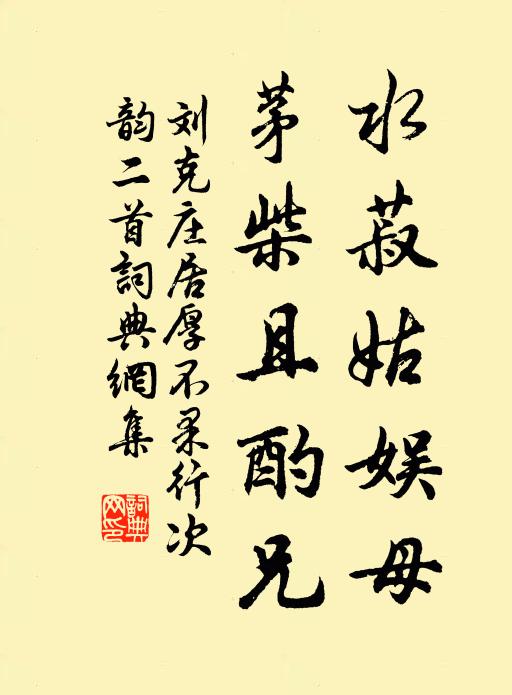 水菽姑娱母
茅柴且酌兄
刘克庄居厚不果行次
韵二首詞典網集
詞典
网印